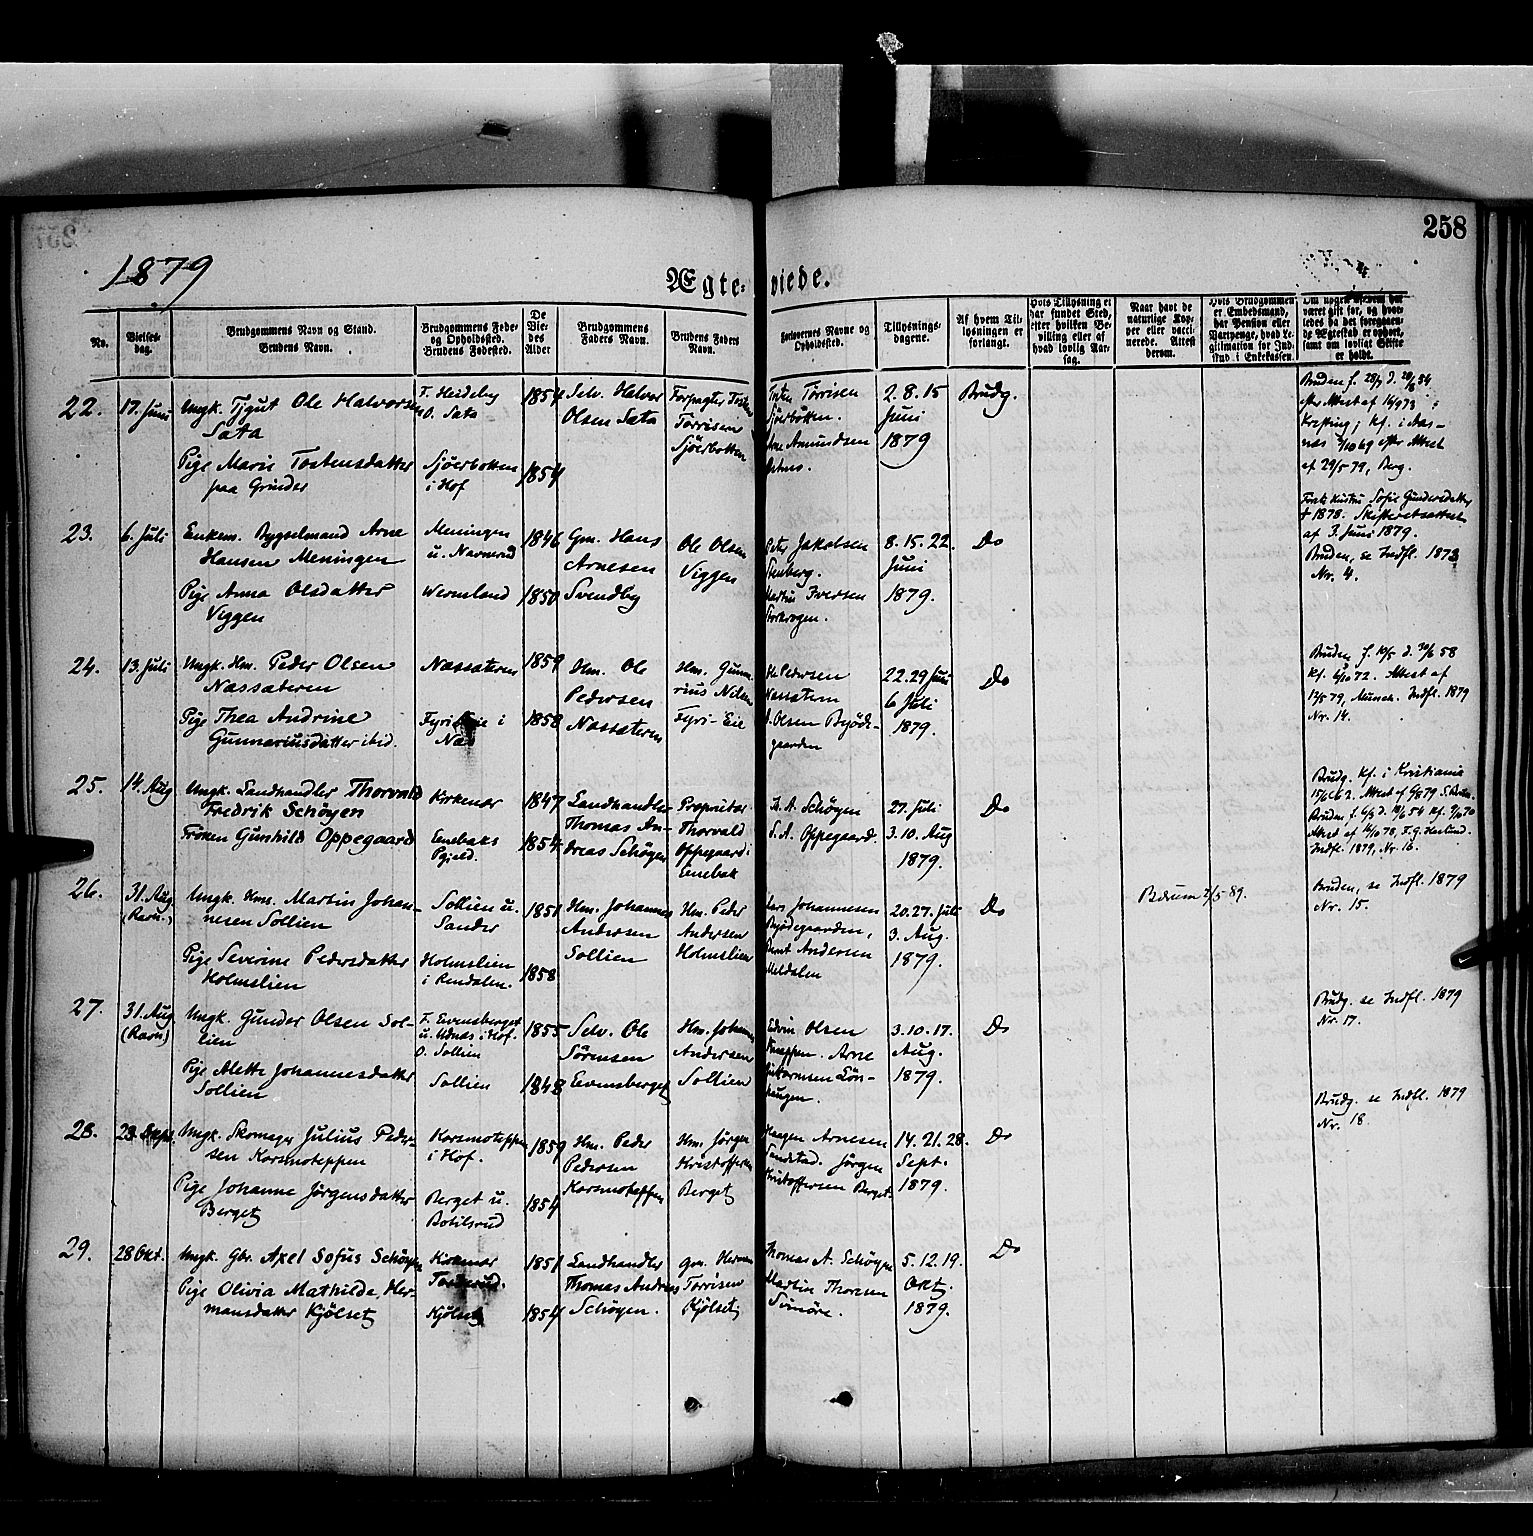 258
1879
Ægte-viede.
No.
Vielses-dag.
Brudgommens Navn og Stand.
Brudens Navn.
Brudgommens Føde- og Opholdssted.
Brudens Fødested.
De Viedes Alder
Brudgommens Faders Navn.
Brudens Faders Navn.
Forlovernes Navne og Opholdssted.
Tillysnings-dagene.
Af hvem Til-lysningen er forlangt.
Hvis Tillysning ei har fundet Sted, efter hvilken Be-villing eller af hvad lovlig Aar-sag.
Naar havt de naturlige Kop-per eller vacci-nerede. Attest derom.
Hvis Brudgommen er Embedsmand, har Pension eller Vartpenge, hvad Le-gitimation for Ind-skud i Enkekassen.
Om nogen af dem har været gift før, og hvor-ledes da det foregaaen-de Ægteskab er ophørt, samt om lovligt Skifte er holdt.
22.
17. Juni
Ungk. Tjgut Ole Halvorsen
Sata
Pige Marie Tostensdatter
paa Grinder
F. Heideby
O. Sata
Sjöerbotten
i Hof
1854
1854
Selv. Halvor
Olsen Sata
Forpagter Tosten
Torrisen
Sjöerbotten
Torrisen
Sjöerbotten.
Arne Amundsen
2. 8. 15
Juni
1879
Brudg.
efter Attest af
29/5 79, Berg.
23.
6. Juli
Enkem. Bygselmand Arne
Hansen Meningen
Pige Anna Olsdatter
Viggen
Meningen
u. Navnerud
Wermland
1846
1850
Gm. Hans
Arnesen
Svendby
Ole Olsen
Viggen
Peter Jakobsen
Stenberg.
Martin Iversen
Storkrogen.
8. 15. 22.
Juni
1879.
Do
Forts Kustru Sofie Gundersdatter
† 1878. Skifteretsattest
af 3. Juni 1879.
Bruden, se Indfl. 1873
Nr. 4.
24.
13. Juli
Ungk. Hm. Peder Olsen
Næssæteren
Pige Thea Andrine
Gunnariusdatter ibid.
Næssæteren
1859
1858
Hm. Ole
Pedersen
Næssæteren
Hm. Gunna-
rius Nilsen
Fyri-Eie
Ole Pedersen
Næssætern
O. Olsen Byöde-
gaarden
22. 29 Juni
6 Juli
1879.
Do
Attest af
12/5 79, Indfl. 1879
Nr. 14.
25.
14. Aug
Ungk. Landhandler Thorvald
Fredrik Schöyen
Fröken Gunhild Oppegaard
Kirkenær
Eenebaks
Pgjeld.
1847
1854
Landhandler
Thomas An-
dreas Schöyen
Proprietær
Thorvald
Oppegaard i
Eenebak
A. Schöyen
S. A. Oppegaard.
27. Juli
3. 10. Aug
1879.
Do
Brudg. Kf. i Kristiania
Indfl. 1879, Nr. 16.
26.
31. Aug.
(Ravn.)
Ungk. Hms. Martin Johan-
nesen Sollien
Pige Severine Pedersdatter
Holmslien
Sollien u.
Sander
Holmslien
i Rendalen.
1851
1858
Hm. Johannes
Andersen
Sollien
Hm. Peder
Andersen
Holmslien
Lars Johannesen
Byödegaarden,
Bernt Andersen
Meldalen
20. 27. Juli
3. Aug.
1879.
Do
Bærum 2/5 89.
Bruden, se Indfl. 1879
Nr. 15.
27.
31. Aug.
(Ravn)
Ungk. Gunder Olsen Sol-
lien
Pige Alette Johannesdatter
Sollien
F. Evensberget
u. Udnæs i Hof.
O. Sollien
Sollien
1855
1848
Selv. Ole
Sörensen
Evensberget
Hm. Johannes
Andersen
Sollien
Edvin Olsen
Arne
3. 10. 17.
Aug.
1879.
Do
Brudg. se Indfl. 1879
Nr. 17.
28.
28. Sept.
Ungk. Skomager Julius Peder-
sen Korsmoteppen
Pige Johanne Jörgensdatter
Berget
Korsmoteppen
i Hof.
Berget u.
Botilsrud
1859
1854
Hm. Peder
Pedersen
Korsmoteppen
Hm. Jörgen
Kristoffersen
Berget
Haagen Arnesen
Sandstad. Jörgen
Kristoffersen Berget.
14. 21. 28.
Sept.
1879.
Do
Brudg. se Indfl. 1879
Nr. 18.
29.
28 Okt.
Ungk. Gbr. Axel Sofus Schöyen
Pige Olivia Mathilde Her-
mansdatter Kjölset
Kirkenær
Kjölset
1851
1854
Landhandler
Thomas Andreas
Schöyen.
Gm. Herman
Torrisen
Kjölset
Thomas A. Schöyen
Martin Thoresen
Svinöre.
5. 12. 19.
Okt.
1879.
Do